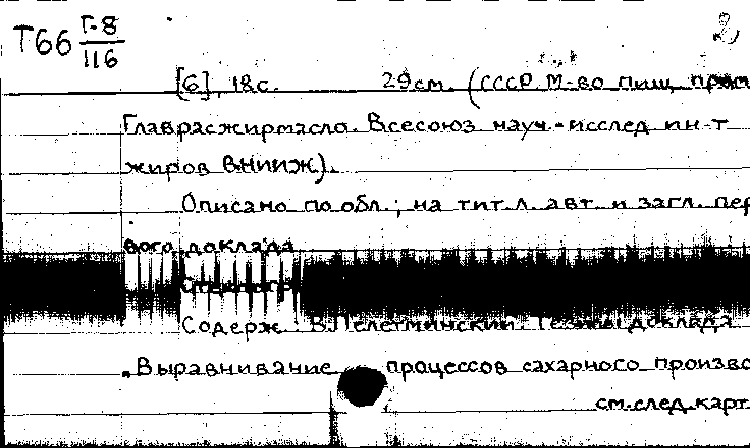 Т66 Г.8/116
2
[6], 18с. 29см. (СССР. М-во пищ. пром
Главрасжирмасло. Всесоюз. науч.-исслед. ин-т
жиров ВНИИЖ).
Описано по обл.; на тит. л. авт. и загл. пер
вого доклада
Содерж.: В. Пелетминский. Тезисы доклада
„Выравнивание процессов сахарного произво
см.след.карт.